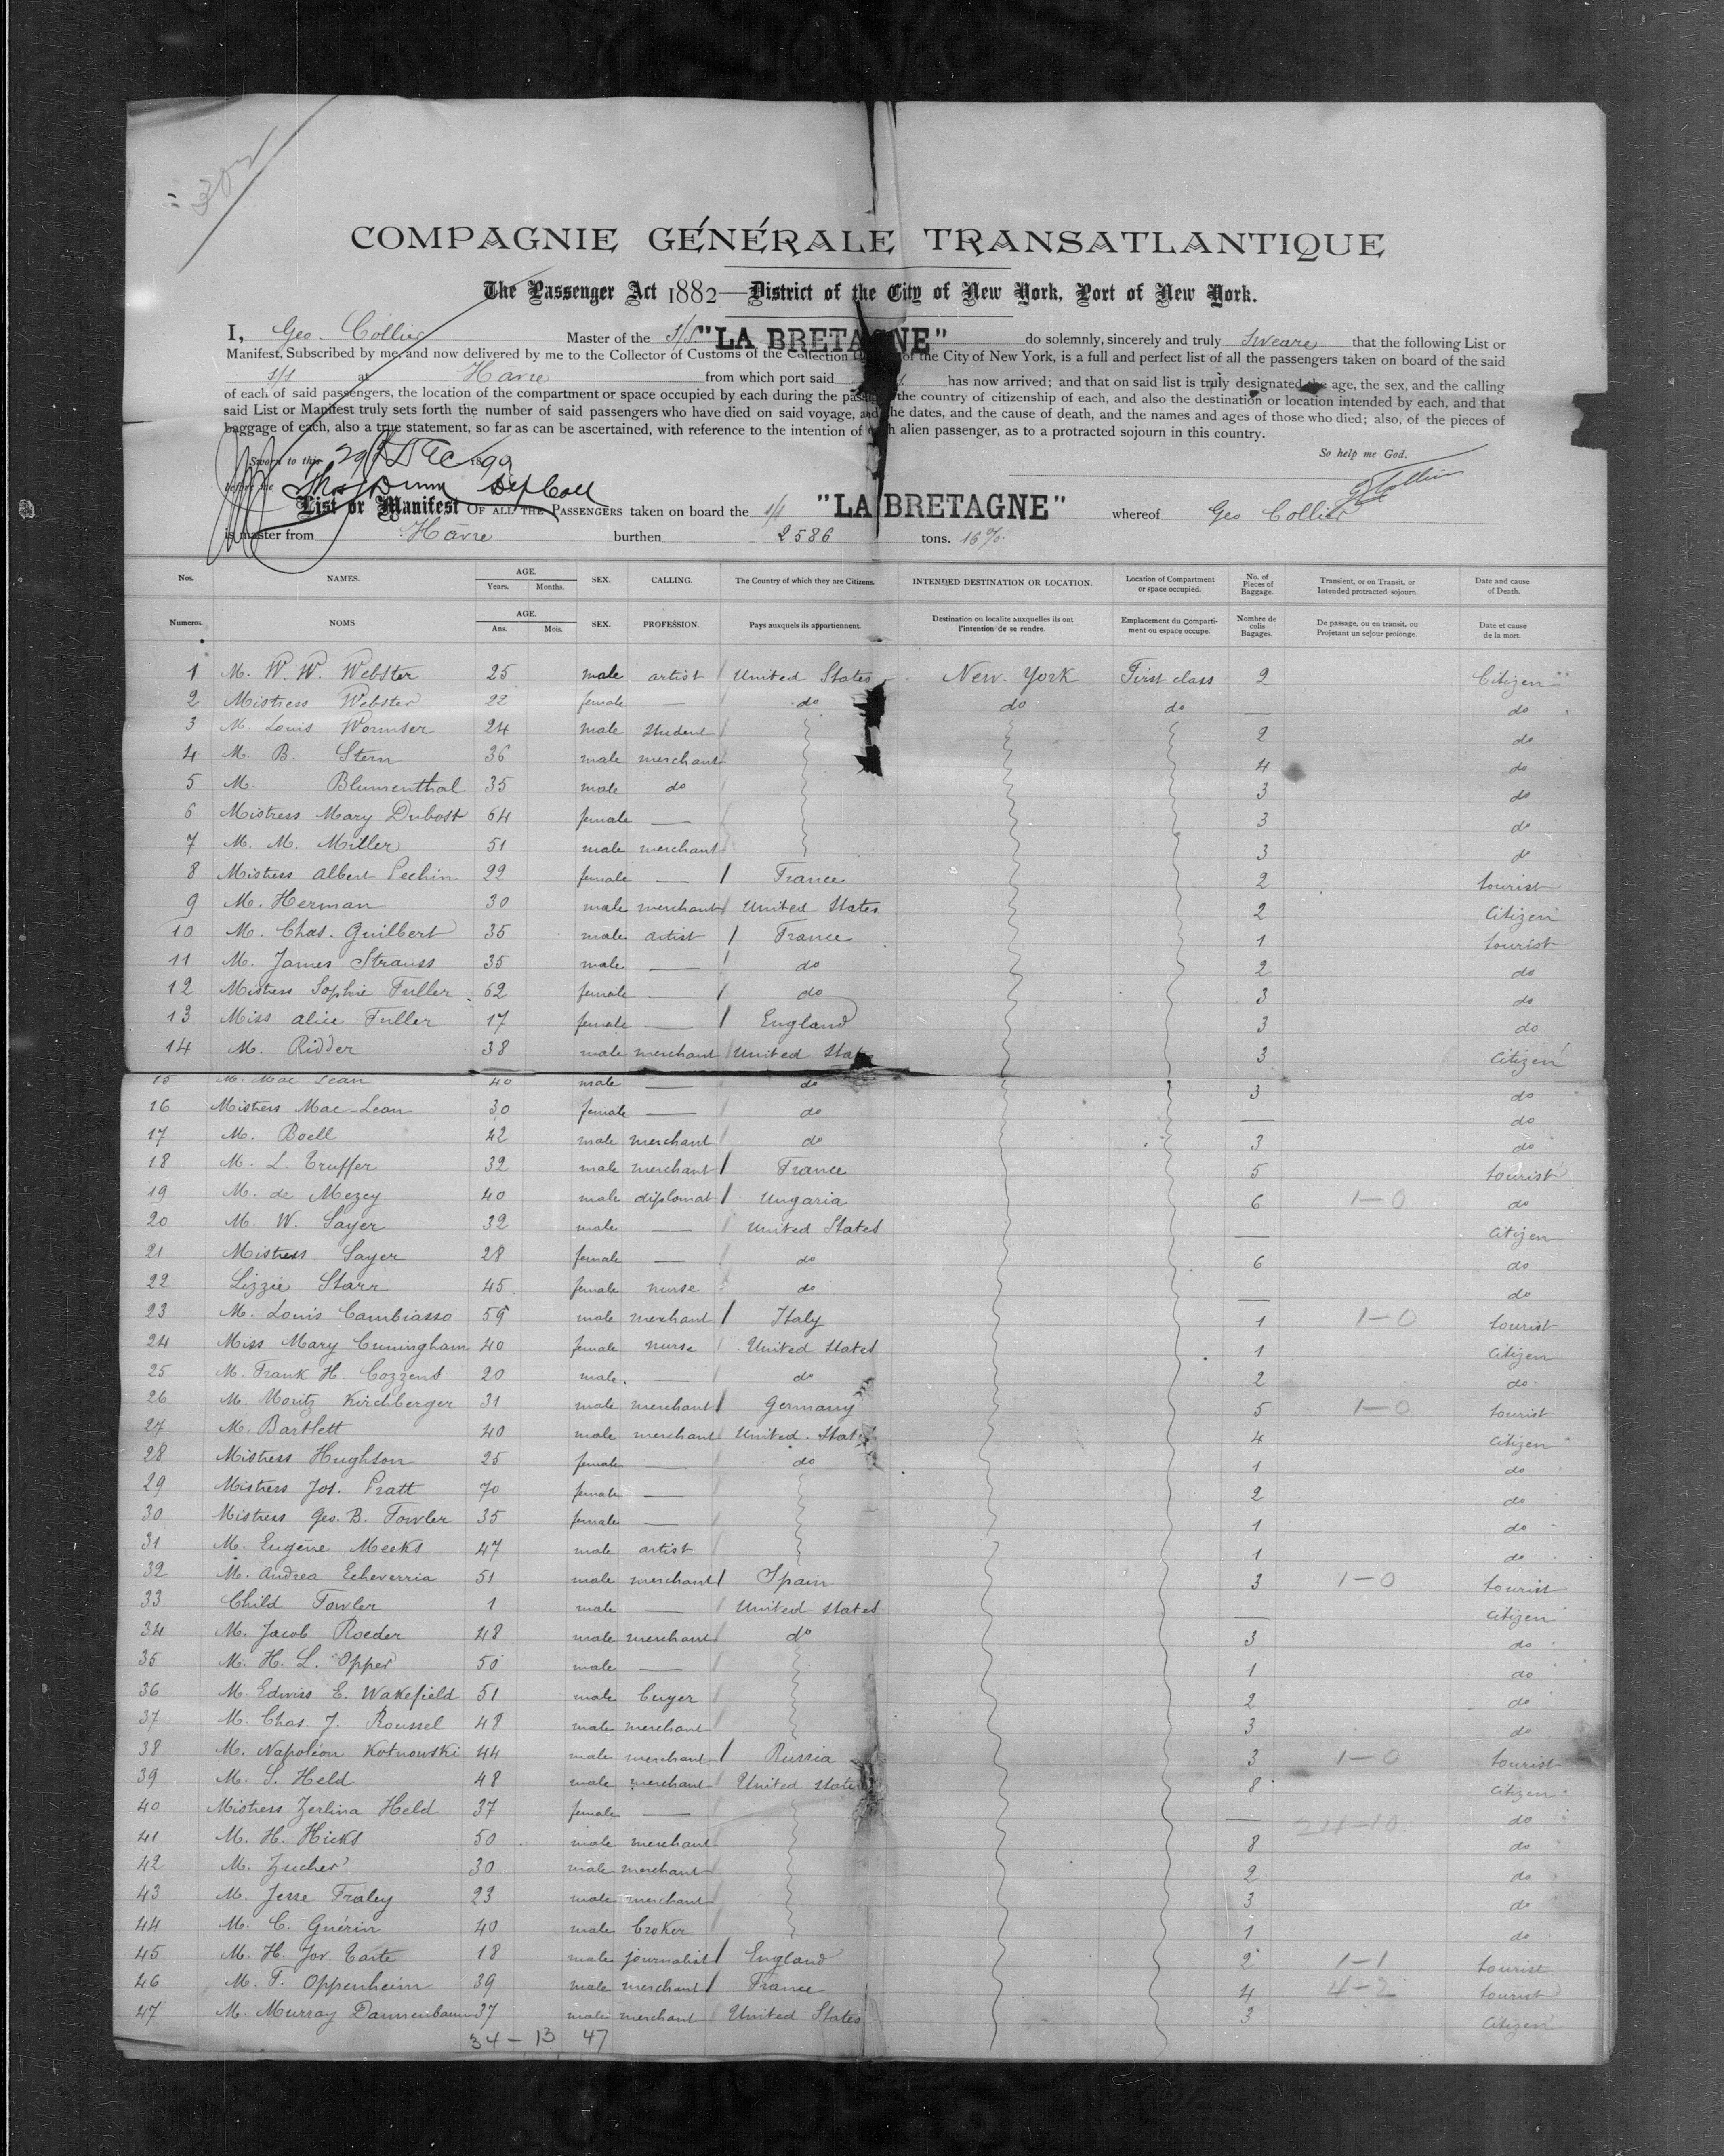 COMPAGNIE GÉNÉRALE TRANSATLANTIQUE
The Passenger Act 1882—District of the City of New York, Port of New York.
I, Geo. Collier Master of the s/s. "LA BRETAGNE" do solemnly, sincerely and truly sweare that the following List or
Manifest, Subscribed by me, and now delivered by me to the Collector of Customs of the Collection of the City of New York, is a full and perfect list of all the passengers taken on board of the said
s/s at Havre from which port said has now arrived; and that on said list is truly designated the age, the sex, and the calling
of each of said passengers, the location of the compartment or space occupied by each during the passage the country of citizenship of each, and also the destination or location intended by each, and that
said List or Manifest truly sets forth the number of said passengers who have died on said voyage, and the dates, and the cause of death, and the names and ages of those who died; also, of the pieces of
baggage of each, also a true statement, so far as can be ascertained, with reference to the intention of each alien passenger, as to a protracted sojourn in this country.
Sworn to this 29 Dec 1890 So help me God.
before me Dunn Dep Coll G Collier
List or Manifest OF ALL THE PASSENGERS taken on board the s/s "LA BRETAGNE" whereof Geo Collier
is master from Havre burthen 2586 tons. 16%
Nos. NAMES. AGE. Years. Months. SEX. CALLING. The Country of which they are Citizens. INTENDED DESTINATION OR LOCATION. Location of Compartment or space occupied. No. of Pieces of Baggage. Transient, or on Transit, or Intended protracted sojourn. Date and cause of Death.
Numeros. NOMS AGE. Ans. Mois. SEX. PROFESSION. Pays auxquels ils appartiennent. Destination ou localite auxquelles ils ont l'intention de se rendre. Emplacement du Compartiment ou espace occupe. Nombre de colis Bagages. De passage, ou en transit, ou Projetant un sejour prolonge. Date et cause de la mort.
1 M. W. W. Webster 25 male artist United States New York First class 2 Citizen
2 Mistress Webster 22 female — do do do — do
3 M. Louis Wormser 24 male student 2 do
4 M. B. Stern 36 male merchant 4 do
5 M. Blumenthal 35 male do 3 do
6 Mistress Mary Dubost 64 female — 3 do
7 M. M. Miller 51 male merchant 3 do
8 Mistress Albert Pechin 22 female — France 2 tourist
9 M. Herman 30 male merchant United States 2 Citizen
10 M. Chas. Guilbert 35 male artist France 1 tourist
11 M. James Strauss 35 male — do 2 do
12 Mistress Sophie Fuller 62 female — do 3 do
13 Miss Alice Fuller 17 female — England 3 do
14 M. Ridder 38 male merchant United States 3 Citizen
15 M. Mac Lean 40 male — do 3 do
16 Mistress Mac-Lean 30 female — do — do
17 M. Boell 42 male merchant do 3 do
18 M. L. Truffer 32 male merchant France 5 tourist
19 M. de Mezey 40 male diplomat Ungaria 6 1-0 do
20 M. W. Sayer 32 male — United States — Citizen
21 Mistress Sayer 28 female — do 6 do
22 Lizzie Starr 45 female nurse do — do
23 M. Louis Cambiasso 59 male merchant Italy 1 1-0 tourist
24 Miss Mary Cuningham 40 female nurse United States 1 Citizen
25 M. Frank H. Cozzens 20 male — do 2 do
26 M. Moritz Kirchberger 31 male merchant Germany 5 1-0 tourist
27 M. Bartlett 40 male merchant United States 4 Citizen
28 Mistress Hughson 25 female — do 1 do
29 Mistress Jos. Pratt 70 female — 2 do
30 Mistress Geo. B. Fowler 35 female — 1 do
31 M. Eugène Meeks 47 male artist 1 do
32 M. Andrea Echeverria 51 male merchant Spain 3 1-0 tourist
33 Child Fowler 1 male — United States — Citizen
34 M. Jacob Roeder 48 male merchant do 3 do
35 M. H. L. Opper 50 male — 1 do
36 M. Edwiss E. Wakefield 51 male buyer 2 do
37 M. Chas. J. Roussel 48 male merchant 3 do
38 M. Napoléon Kotnowski 44 male merchant Russia 3 1-0 tourist
39 M. S. Held 48 male merchant United States 8 Citizen
40 Mistress Zerlina Held 37 female — — do
41 M. H. Hicks 50 male merchant 8 24-10 do
42 M. Zucher 30 male merchant 2 do
43 M. Jesse Fraley 23 male merchant 3 do
44 M. C. Guérin 40 male broker 1 do
45 M. H. Jos. Tarte 18 male journalist England 2 1-1 tourist
46 M. F. Oppenheim 39 male merchant France 4 4-2 tourist
47 M. Murray Dannenbaum 37 male merchant United States 3 Citizen
34 - 13 47